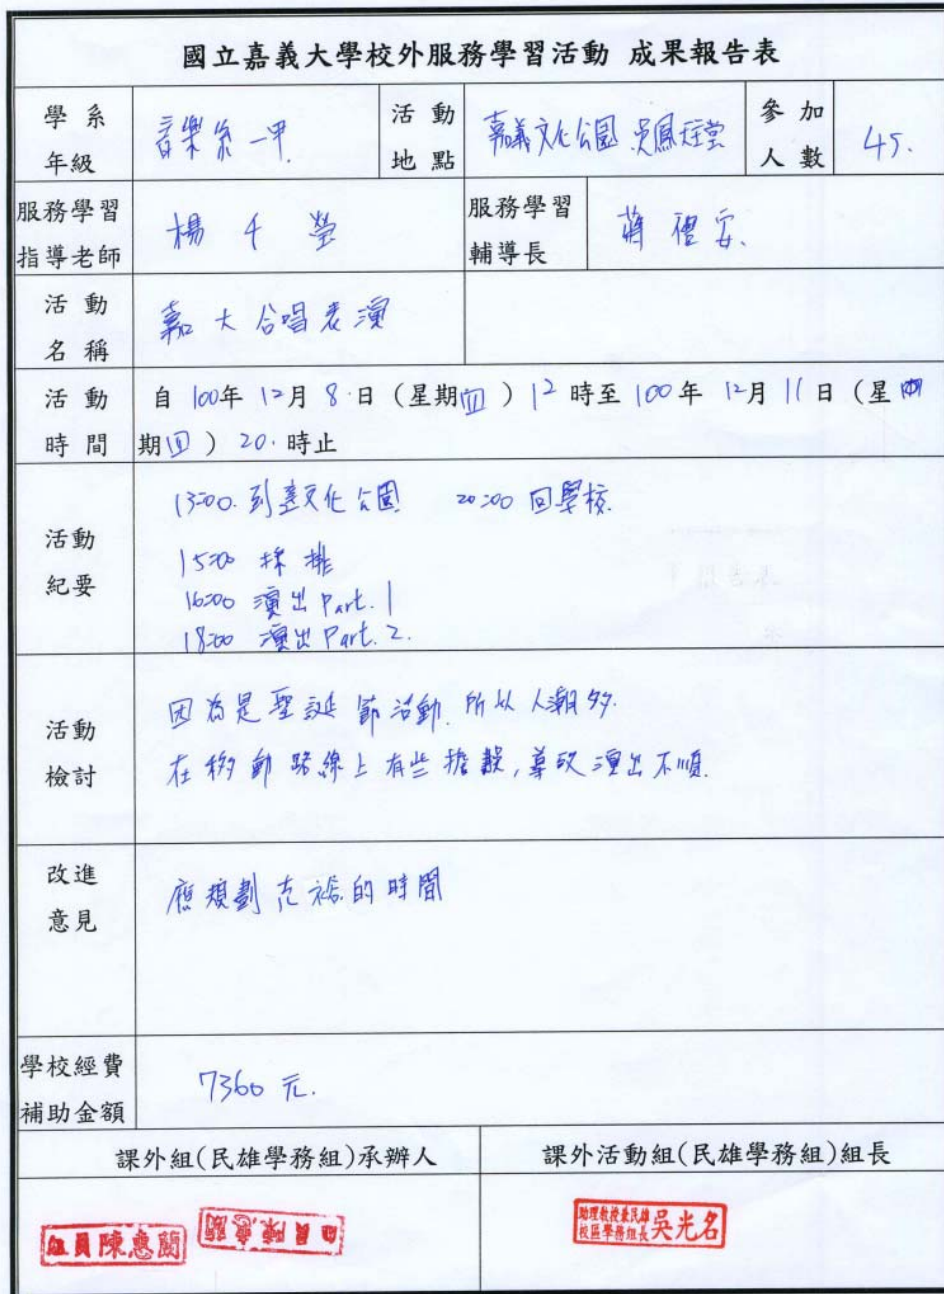 國立嘉義大學校外服務學習活動 成果報告表
學系年級 音樂系一甲. 活動地點 嘉義文化公園 吳鳳 參加人數 45.
服務學習指導老師 楊千瑩 服務學習輔導長 蔣 安.
活動名稱 嘉大合唱表演
活動時間 自100年12月8日(星期四)12時至100年12月11日(星
期四)20.時止
活動紀要
13:00.到達文化公園 20:00 回學校.
15:00 採排
16:00 演出 Part.1
18:00 演出 Part.2.
活動檢討
因為是聖誕節活動.所以人潮多.
在移動路線上有些擔誤,導致演出不順.
改進意見
應規劃充裕的時間
學校經費補助金額 7360元.
課外組(民雄學務組)承辦人 課外活動組(民雄學務組)組長
組員陳惠蘭 組員陳惠蘭 助理教授兼民雄校區學務組長吳光名